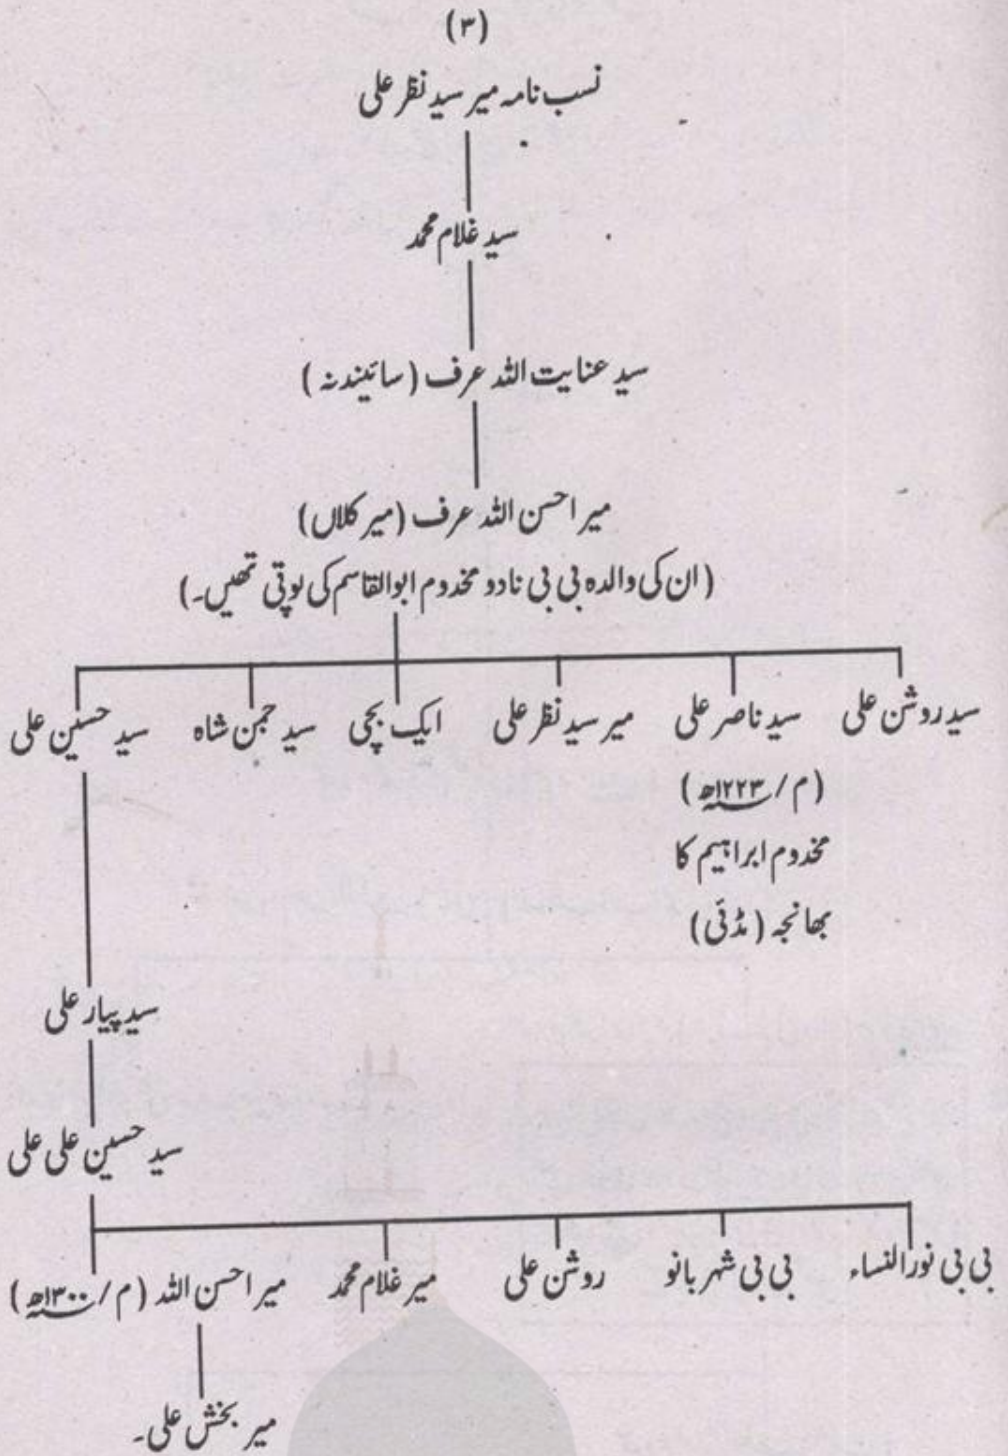 (۳)
نسب نامہ میر سید نظر علی
سید غلام محمد
سید عنایت اللہ عرف (سائیندنہ)
میر احسن اللہ عرف (میر کلاں)
(ان کی والدہ بی بی نادو مخدوم ابوالقاسم کی پوتی تھیں۔)
سید روشن علی سید ناصر علی میر سید نظر علی ایک بچی سید جمن شاہ سید حسین علی
(م/ ۱۲۲۳ھ)
مخدوم ابراہیم کا
بھانجہ (مڈئی)
سید پیار علی
سید حسین علی علی
بی بی نورالنساء بی بی شہر بانو روشن علی میر غلام محمد میر احسن اللہ (م/ ۱۳۰۰ھ)
میر بخش علی۔